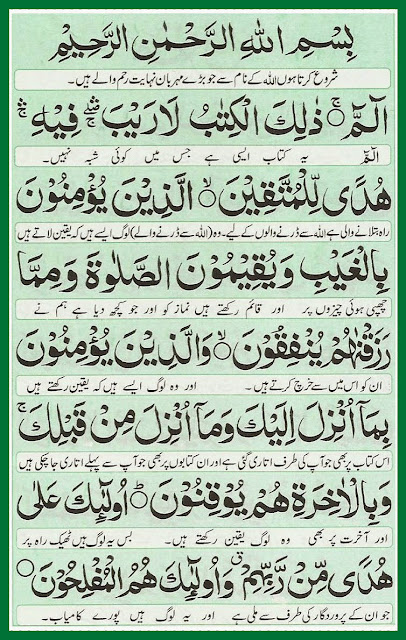 بِسْمِ اللهِ الرَّحْمٰنِ الرَّحِيْمِ
شروع کرتا ہوں اللہ کے نام سے جو بڑے مہربان نہایت رحم والے ہیں۔
الٓمّٓ ۚ ذٰلِكَ الْكِتٰبُ لَا رَيْبَ ۛۚ فِيْهِ ۛۚ
الٓمّٓ یہ کتاب ایسی ہے جس میں کوئی شبہ نہیں۔
هُدًى لِّلْمُتَّقِيْنَ ۙ الَّذِيْنَ يُؤْمِنُوْنَ
راہ بتلانے والی ہے اللہ سے ڈرنے والوں کے لیے۔ وہ (اللہ سے ڈرنے والے) لوگ ایسے ہیں کہ یقین لاتے ہیں
بِالْغَيْبِ وَيُقِيْمُوْنَ الصَّلٰوةَ وَمِمَّا
چھپی ہوئی چیزوں پر اور قائم رکھتے ہیں نماز کو اور جو کچھ دیا ہے ہم نے
رَزَقْنٰهُمْ يُنْفِقُوْنَ ۙ وَالَّذِيْنَ يُؤْمِنُوْنَ
ان کو اس میں سے خرچ کرتے ہیں۔ اور وہ لوگ ایسے ہیں کہ یقین رکھتے ہیں
بِمَآ اُنْزِلَ اِلَيْكَ وَمَآ اُنْزِلَ مِنْ قَبْلِكَ ۚ
اس کتاب پر بھی جو آپ کی طرف اتاری گئی ہے اور ان کتابوں پر بھی جو آپ سے پہلے اتاری جا چکی ہیں
وَبِالْاٰخِرَةِ هُمْ يُوْقِنُوْنَ ؕ اُولٰٓئِكَ عَلٰى
اور آخرت پر بھی وہ لوگ یقین رکھتے ہیں۔ بس یہ لوگ ہیں ٹھیک راہ پر
هُدًى مِّنْ رَّبِّهِمْ ۙ وَاُولٰٓئِكَ هُمُ الْمُفْلِحُوْنَ ۝
جو ان کے پروردگار کی طرف سے ملی ہے اور یہ لوگ ہیں پورے کامیاب۔